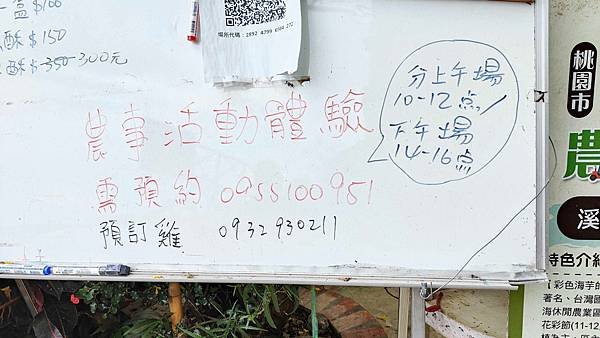 一盒$100
酥$150
酥$350 300元
場所代碼：2892 4799 6964 272
農事活動體驗
需預約 0955100951
預訂雞 0932930211
分上午場
10-12点/
下午場
14-16点
桃園市
農
溪
特色介紹
【彩色海芋的
著名、台灣國
海休閒農業區
花彩節(11-12